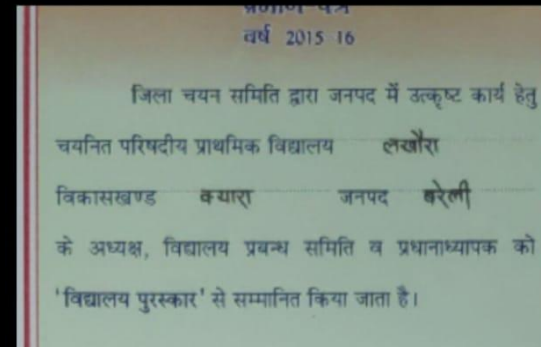 प्रमाण-पत्र
वर्ष 2015-16
जिला चयन समिति द्वारा जनपद में उत्कृष्ट कार्य हेतु
चयनित परिषदीय प्राथमिक विद्यालय लखौरा
विकासखण्ड क्यारा जनपद बरेली
के अध्यक्ष, विद्यालय प्रबन्ध समिति व प्रधानाध्यापक को
'विद्यालय पुरस्कार' से सम्मानित किया जाता है।